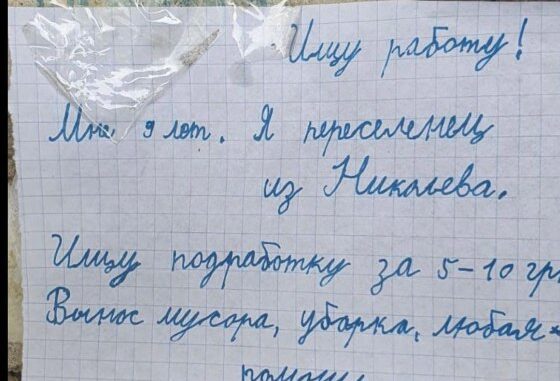 Ищу работу!
Мне 9 лет. Я переселенец
из Николаева.
Ищу подработку за 5-10 гр
Вынос мусора, уборка, любая